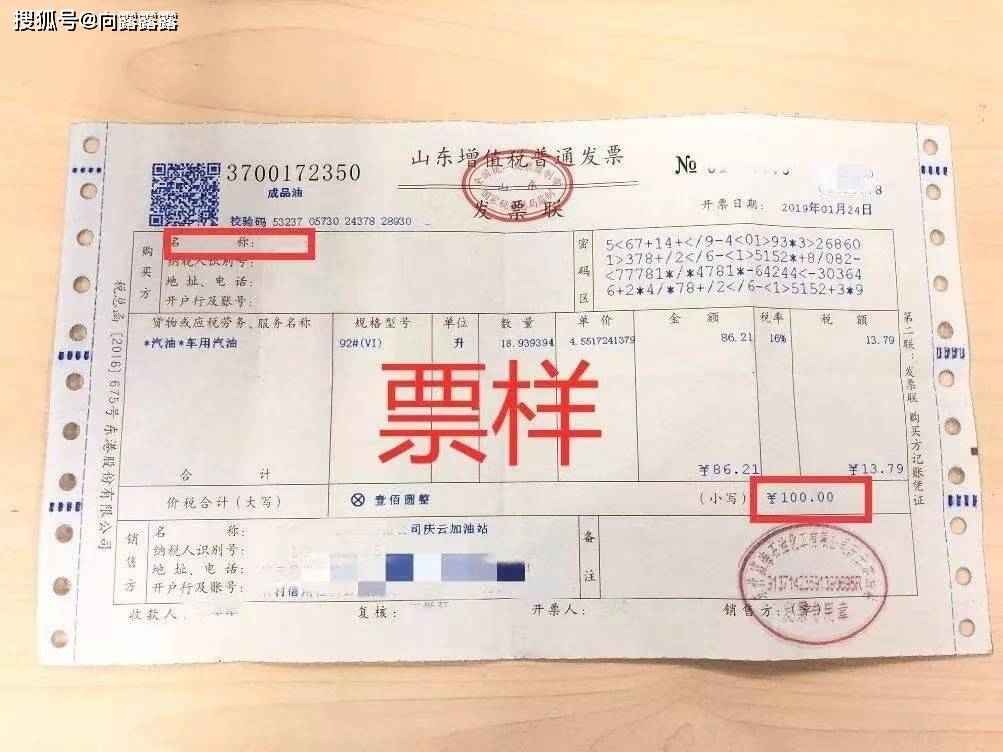 搜狐号@向露露露
3700172350
山东增值税普通发票
№
成品油
全国统一发票监制章
山东
国家税务总局监制
发票联
校验码 53237 05730 24378 28930
开票日期: 2019年01月24日
购买方
名 称:
纳税人识别号:
地 址、电 话:
开户行及账号:
密码区
5<67+14+</9-4<01>93*3>26860
1>378+/2</6-<1>5152*+8/082-
<77781*/*4781*-64244<-30364
6+2*4/*78+/2</6-<1>5152+3*9
货物或应税劳务、服务名称 规格型号 单位 数 量 单 价 金 额 税率 税 额
*汽油*车用汽油 92#(VI) 升 18.939394 4.5517241379 86.21 16% 13.79
票样
合 计 ¥86.21 ¥13.79
价税合计(大写) ⊗ 壹佰圆整 (小写) ¥100.00
销售方
名 称: 公司庆云加油站
纳税人识别号:
地 址、电 话:
开户行及账号:
备注
收款人: 复核: 开票人: 销售方:(章)
发票专用章
税总函[2016]675号东港股份有限公司
第二联:发票联 购买方记账凭证